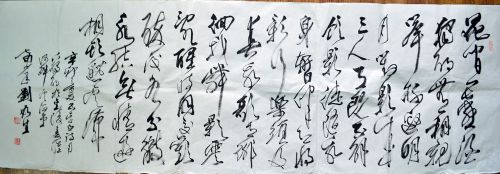 花間一壺酒
獨酌無相親
舉杯邀明
月對影成
三人月既不解
飲影徒隨我
身暫伴月將
影行樂須及
春我歌月徘
徊我舞影零
亂醒時同交歡
醉後各分散
永結無情遊
相期邈雲漢